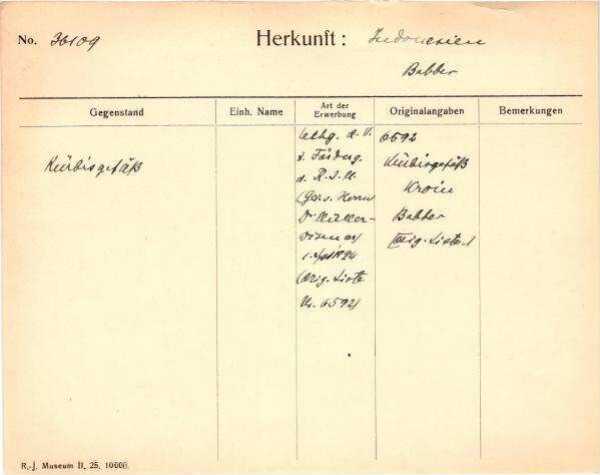 No. 36109 Herkunft: Indonesien
Babber
Gegenstand Einh. Name Art der Erwerbung Originalangaben Bemerkungen
Kürbisgefäß
d. V.
z. Förderg.
d. R. J. M.
Herrn
Dr Müller-
Wismar
(Orig. Liste
Nr. 6592)
6592
Kürbisgefäß
Kroin
Babber
Orig. Liste
R.-J. Museum II. 25. 10000.